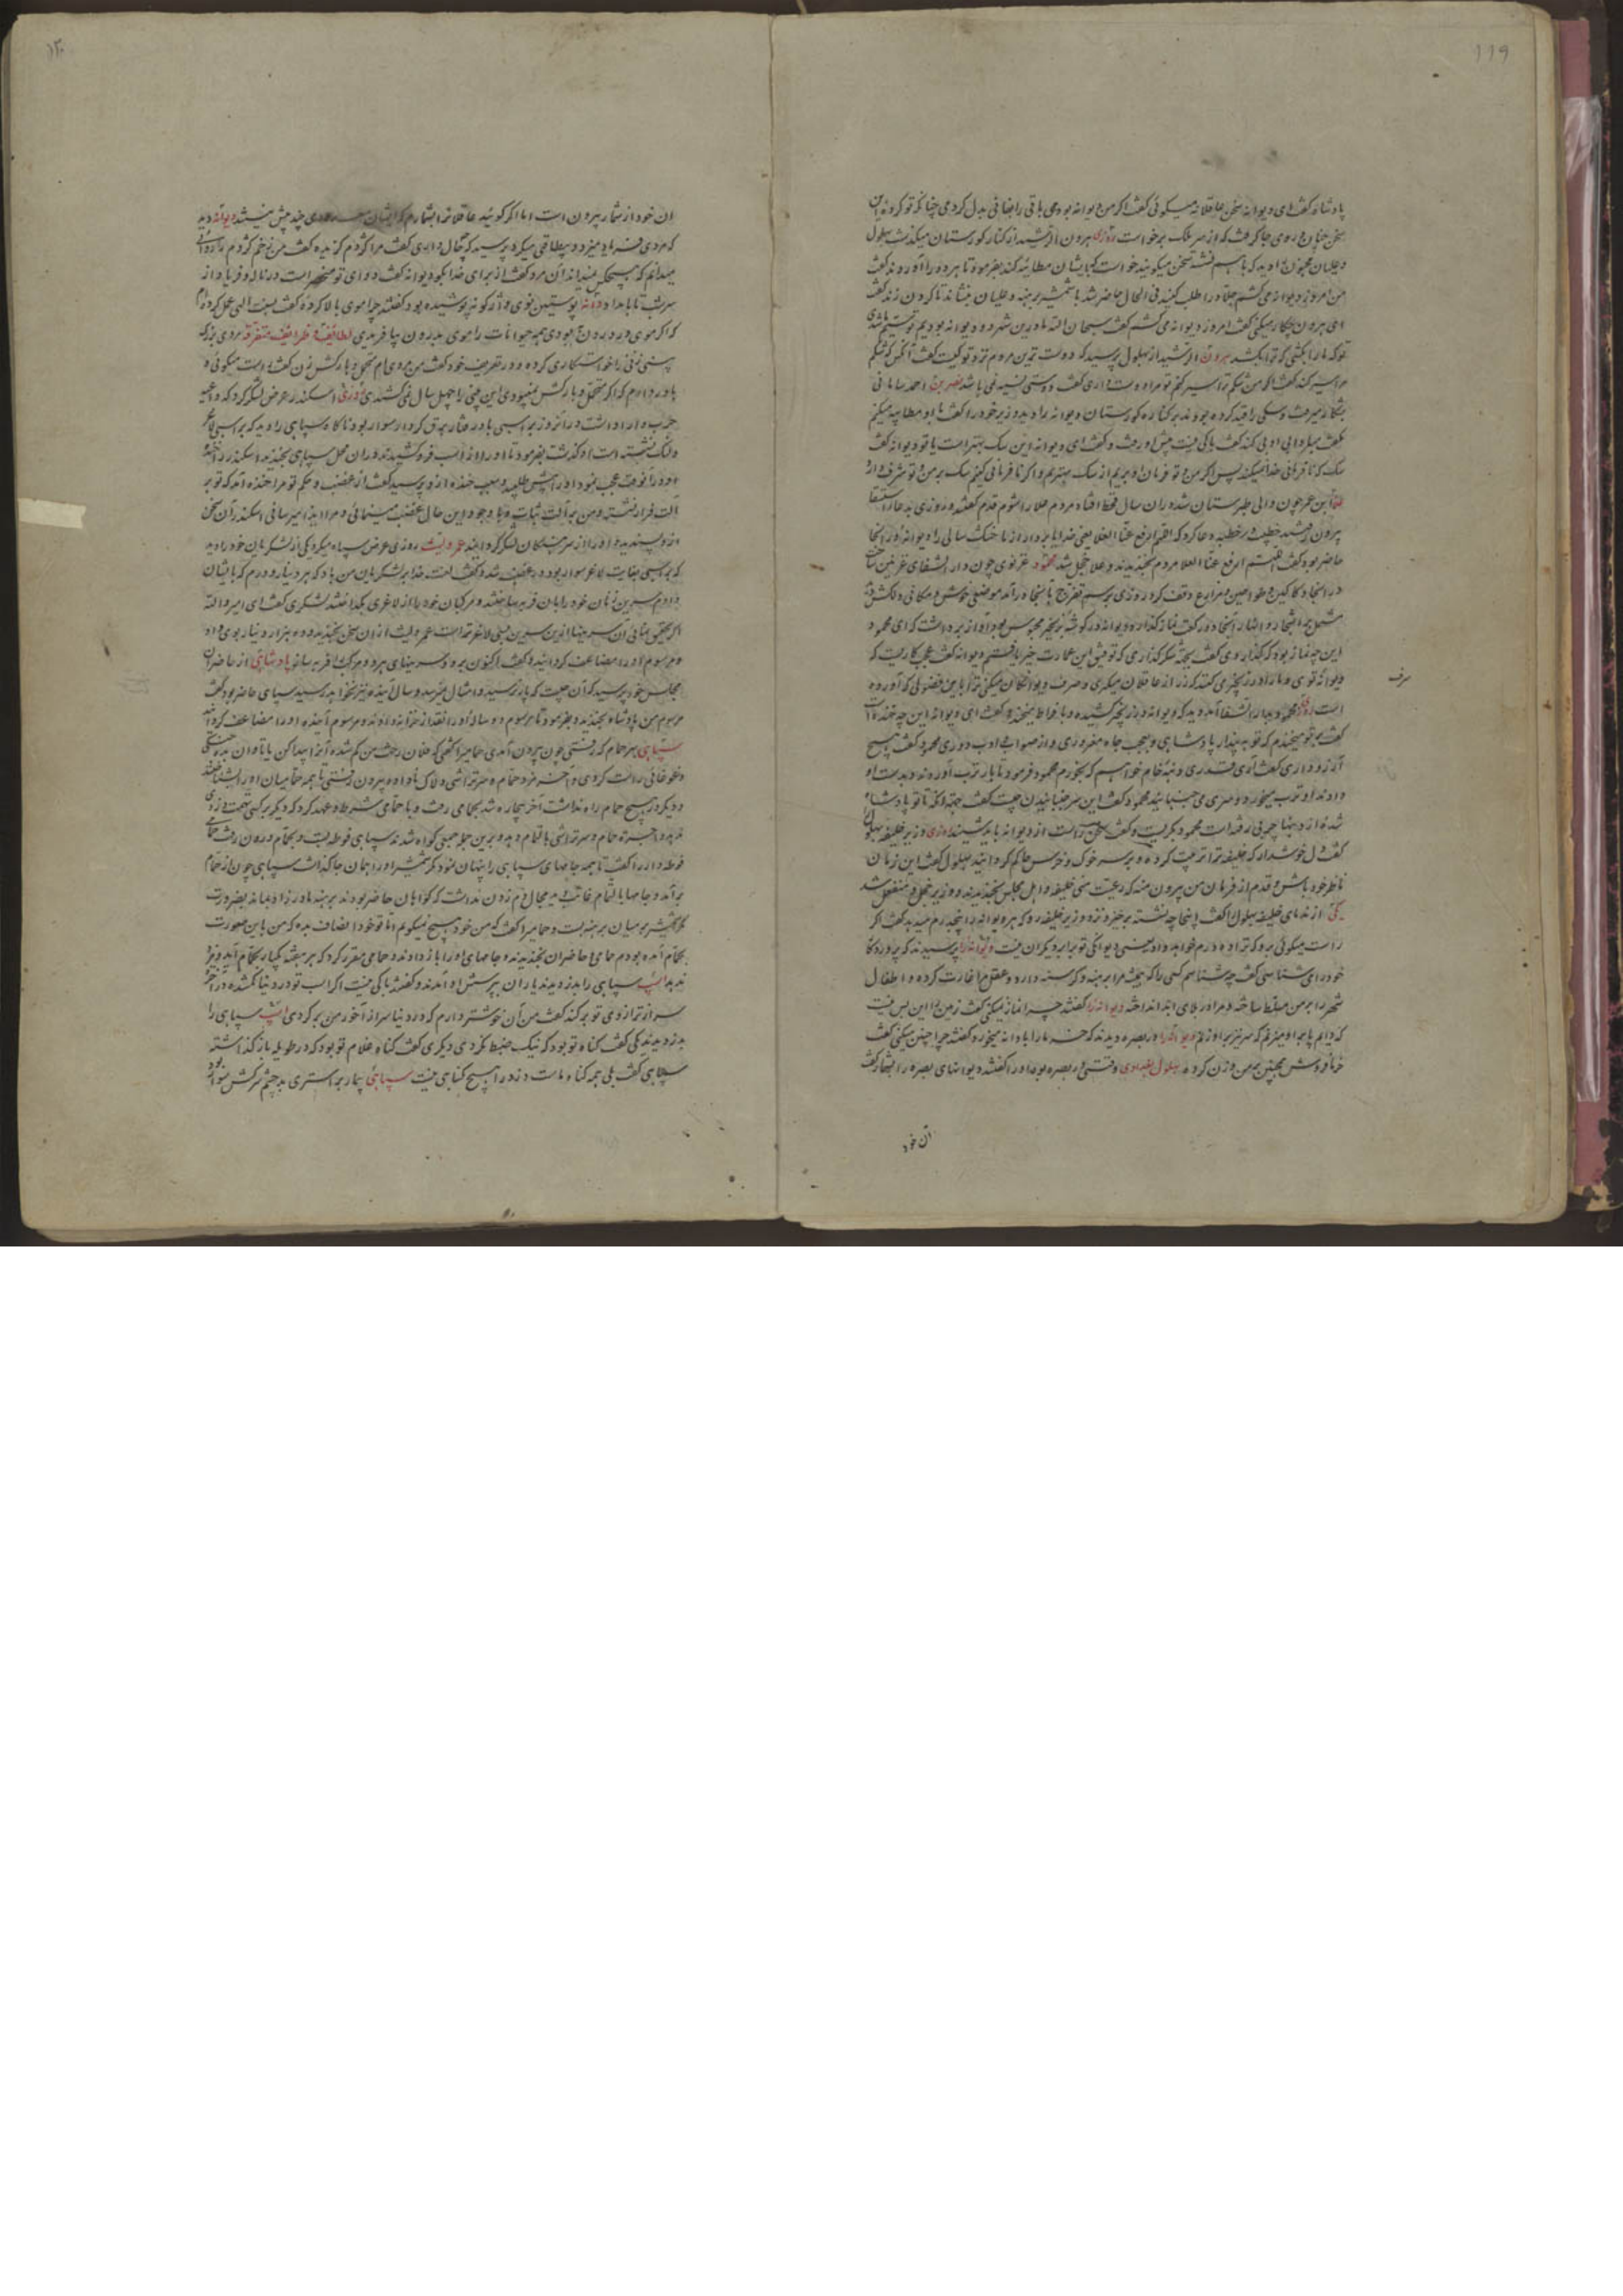 ۱۱۹
پادشاه گفت ای دیوانه سخن عاقلانه میگوئی گفت اگر من دیوانه بودمی باقی را بفانی بدل کردمی چنانکه تو کرده این
سخن چنان در وی جا گرفت که از سر ملک برخواست روزی هرون الرشید از کنار کورستان میگذشت بهلول
و علیان مجنون را دید که باهم نشسته سخن میگویند خواست که بایشان مطایبه کند بفرمود تا هر دو را آوردند گفت
من امروز دیوانه می کشم جلاد را طلب کنید فی الحال حاضر شد با شمشیر برهنه و علیان بنشاند تا گردن زند گفت
ای هرون چکار میکنی گفت امروز دیوانه می کشم گفت سبحان الله ما درین شهر دو دیوانه بودیم تو سیم باشی
تو که ما را بکشی که ترا بکشد هرون الرشید از بهلول پرسید که دوست ترین مردم نزد تو کیست گفت آنکس که شکم
مرا سیر کند گفت اگر من شکم ترا سیر کنم تو مرا دوست داری گفت دوستی نسیه نمی باشد نصر بن احمد سامانی
بشکار میرفت و سگی را قید کرده بودند بر کناره کورستان دیوانه را دید وزیر خود را گفت با او مطایبه میکنم
گفت مبادا بی ادبی کند گفت باکی نیست پیش او رفت و گفت ای دیوانه این سگ بهتر است یا تو دیوانه گفت
سگ که نافرمانی خداوند نمیکند پس اگر من و تو فرمان او بریم از سگ بهتریم و اگر نافرمانی کنیم سگ بر من و تو شرف دارد
ابن عمر چون والی طبرستان شد در آن سال قحط افتاد مردم علا را شوم قدم گفتند و روزی بدعا استسقا
بیرون شدند خطیب در خطبه دعا کرد که اللهم ارفع عنا الغلا یعنی خدایا بردار از ما خشک سالی را دیوانه در آنجا
حاضر بود گفت اللهم ارفع عنا العلا مردم بخندیدند و علا خجل شد محمود غزنوی چون دارالشفای غزنین ساخت
در آنجا دکاکین و طواحین و مزارع وقف کرد روزی برسم تفرج بآنجا درآمد موضعی خوش و مکانی دلکش
مشتمل بر اشجار و انهار آنجا دو رکعت نماز گذارد دیوانه در گوشه بزنجیر محبوس بود آواز برداشت که ای محمود
این چه نماز بود که گذاردی گفت بجهة شکر گذاری که توفیق این عمارت خیر یافتم دیوانه گفت عجب کاریست که
دیوانه توی و ما را در زنجیر می کشند که زر از عاقلان میگیری و صرف دیوانگان میکنی ترا باین فضولی که آورده
صرف
است روزی محمود بدارالشفا آمد دید که دیوانه در زنجیر کشیده و بافراط میخندد گفت ای دیوانه این چه خنده است
گفت بر تو میخندم که تو به پندار پادشاهی و بعجب جاه مغروری و از صواب و ادب دوری محمود گفت هیچ
آرزو داری گفت آری قدری دنبه خام خواهم که بخورم محمود فرمود تا پاره ترب آوردند و بدست او
دادند او ترب میخورد و سری می جنبانید محمود گفت این سر جنبانیدن چیست گفت بجهة آنکه تا تو پادشاه
شده از دنبها چربی رفته است محمود بگریست و گفت سخن راست از دیوانه باید شنید روزی وزیر خلیفه بهلول را
گفت دل خوشدار که خلیفه ترا تربیت کرده و بر سر خوک و خرس حاکم گردانید بهلول گفت این زمان
ناظر خود باش و قدم از فرمان من بیرون منه که رعیت منی خلیفه و اهل مجلس بخندیدند و وزیر خجل و منفعل شد
یکی از ندمای خلیفه بهلول را گفت اینجا چه نشسته برخیز و نزد وزیر خلیفه رو که هر دیوانه را پنجدرم میدهد گفت اگر
راست میگوئی برو که ترا ده درم خواهد داد یعنی دیوانگی تو برابر دیگران نیست دیوانه را پرسیدند که پروردگار
خود را می شناسی گفت چه شناسم کسی را که همیشه مرا برهنه و گرسنه دارد و عقلم را غارت کرده و اطفال
شهر را بر من مسلط ساخته و مرا در بلای ابد انداخته دیوانه را گفتند چرا نماز نمیکنی گفت زمین را این بس نیست
که دایم پا بر او میزنم که سر نیز بر او زنم دیوانه را در بصره دیدند که خرما را با دانه میخورد گفتند چرا چنین میکنی گفت
خرما فروش همچنین بر من وزن کرده بهلول بغدادی وقتی در بصره بود او را گفتند دیوانهای بصره را بشمار گفت
آن خود
۱۲۰
آن خود از شمار بیرون است اما اگر گوئید عاقلانرا بشمارم که ایشان معدودی چند بیش نیستند دیوانه دید
که مردی فریاد میزد و بیطاقتی میکرد پرسید که چه حال داری گفت مرا کژدم گزیده گفت من زخم کژدم را دوائی
میدانم که هیچکس نمیداند آن مرد گفت از برای خدا بگو دیوانه گفت دوای تو منحصر است در ناله و فریاد از
سر شب تا بامداد دیوانه پوستین نوی واژگونه پوشیده بود گفتند چرا موی بالا کرده گفت بسنت الهی عمل کرده ام
که اگر موی در درون بودی همه حیوانات را موی بدرون بیافریدی لطایف و ظرایف متفرقه مردی بزرک
بینی زنی را خواستگاری کرده و در تعریف خود گفت من مردی ام متحمل و بارکش زن گفت راست میگوئی و
باور دارم که اگر متحمل و بارکش نمیبودی این بینی را چهل سال نمی کشیدی روزی اسکندر عرض لشکر کرد که داعیه
حرب دارا داشت در آنروز بر اسبی بادرفتار برق کردار سوار بود ناگاه سپاهی را دید که بر اسبی لاغر
و لنگ نشسته است او گذشت بفرمود تا او را از اسب فرو کشیدند در آن محل سپاهی بخندید اسکندر را خنده
او در آنوقت عجب نمود او را پیش طلبید و سبب خنده ازو پرسید گفت از غضب و حکم تو مرا خنده آمد که تو بر
آلت فرار نشسته و من بر آلت ثبات و با وجود این حال غضب مینمائی و مرا ایذا میرسانی اسکندر آن سخن
ازو پسندید و او را از سرهنگان لشکر گردانید عمرو لیث روزی عرض سپاه میکرد یکی از لشکریان خود را دید
که بر اسبی بغایت لاغر سوار بود در غضب شد و گفت لعنت خدا بر لشکریان من باد که هر دینار و درم که بایشان
دادم سرین زنان خود را بآن فربه ساختند و مرکبان خود را از لاغری بگداختند لشکری گفت ای امیر والله
اگر تحقیق نمائی آن سرینها از این سرین اسبی لاغرتر است عمرو لیث از آن سخن بخندید و ده هزار دینار بوی داد
و مرسوم او را مضاعف گردانید و گفت اکنون برو و سرینهای هر دو مرکب را فربه ساز پادشاهی از حاضران
مجلس خود پرسید که آن چیست که پار نرسید و امسال نمیرسد و سال آینده نیز نخواهد رسید سپاهی حاضر بود گفت
مرسوم من پادشاه بخندید و بفرمود تا مرسوم دو ساله او را نقد از خزانه دادند و مرسوم آینده او را مضاعف گردانید
سپاهی بهر حمام که رفتی چون بیرون آمدی حمامی را گفتی که فلان رخت من گم شده آنرا پیدا کن یا تاوان بده
و دیگر در هیچ حمام راه نداشت آخر بیچاره شد بحمامی رفت و با حمامی شرط و عهد کرد که دیگر بر کسی تهمت دزدی
ننهد و اجرة حمام و سرتراشی بالتمام دهد و برین جمله جمعی گواه شدند سپاهی فوطه بست و بحمام درون رفت حمامی
فوطه دار را گفت تا همه جامهای سپاهی را پنهان نمود مگر شمشیر او را بهمان جا گذاشت سپاهی چون از حمام
برآمد و جامها بالتمام غائب دید مجال دم زدن نداشت که گواهان حاضر بودند برهنه مادرزاد بماند بضرورت
کمر شمشیر بر میان برهنه بست و حمامی را گفت که من خود هیچ نمیگویم اما تو خود انصاف بده که من باین صورت
بحمام آمده بودم حمامی و حاضران بخندیدند و جامهای او را باز دادند و حمامی مقرر کرد که هر هفته یکبار بحمام آید و مزد
ندهد اسب سپاهی را بدزدیدند یاران بپرسش او آمدند و گفتند باکی نیست اگر اسب تو در دنیا گم شده در آخرت
سر از ترازوی تو بر کند گفت من آن خوشتر دارم که در دنیا سر از آخور من بر کردی اسب سپاهی را
بدزدیدند یکی گفت گناه تو بود که نیک ضبط نکردی دیگری گفت گناه غلام تو بود که در طویله باز گذاشته
سپاهی گفت بلی همه گناه ماست دزد را هیچ گناهی نیست سپاهئی بیمار بر استری بد چشم سرکش سوار بود